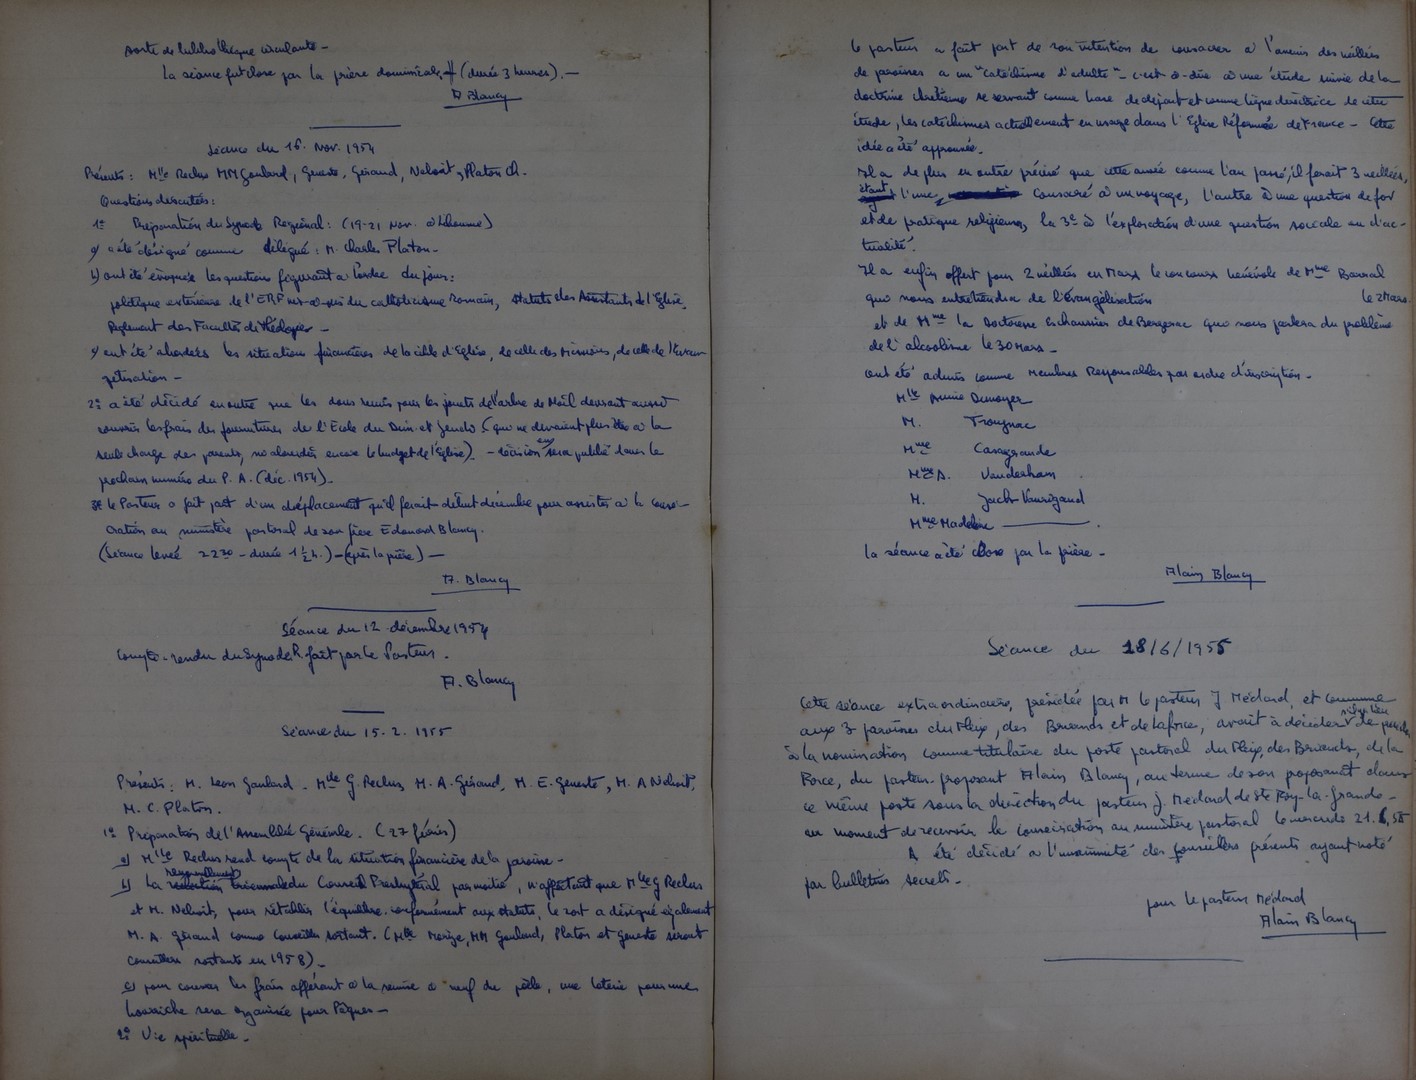 sorte de bibliothèque circulante -
La séance fut close par la prière dominicale (durée 3 heures). -
A Blancy
Séance du 16. Nov. 1954
Présents : Mlle Reclus MM Goulard, Geneste, Géraud, Neboit, Platon Ch.
Questions discutées :
1º Préparation du Synode Régional : (19-21 Nov. à
a) a été désigné comme délégué : M. Charles Platon -
b) ont été évoquées les questions figurant à l'ordre du jour :
politique extérieure de l'ERF vis-à-vis du catholicisme Romain, statuts des Assistants de l'Eglise,
Règlement des Facultés de théologie -
c) ont été abordées les situations financières de la cible d'Eglise, de celle des Missions, de celle de l'Evan-
gélisation -
2º a été décidé en outre que les dons remis pour les jouets de l'arbre de Noël devront aussi
couvrir les frais des fournitures de l'Ecole du Dim. et Jeudi. (qui ne devraient plus être à la
seule charge des parents, ni alourdir encore le budget de l'Eglise). - décision sera publiée dans le
prochain numéro du P. A. (déc. 1954) -
3º le Pasteur a fait part d'un déplacement qu'il ferait début décembre pour assister à la consé-
cration au ministère pastoral de son frère Edouard Blancy.
(Séance levée 22 30 - durée 1 1/2 h.) - (après la prière) -
A. Blancy
Séance du 12 décembre 1954
Compte-rendu du Synode R. fait par le Pasteur.
A. Blancy
Séance du 15. 2. 1955
Présents : M. Leon Goulard. Mlle G. Reclus, M. A. Géraud, M. E. Geneste, M. A Neboit,
M. C. Platon.
1º Préparation de l'Assemblée Générale. (27 février)
a) Mlle Reclus rend compte de la situation financière de la paroisse -
b) La renouvellement triennale du Conseil Presbytéral par moitié, n'affectant que Mlle G Reclus
et M. Neboit, pour rétablir l'équilibre conformément aux statuts, le sort a désigné également
M. A. Géraud comme Conseiller sortant. (MM Goulard, Platon et Geneste seront
conseillers sortants en 1958) -
c) pour couvrir les frais afférant à la remise à neuf du poêle, une loterie pour une
bourriche sera organisée pour Pâques -
2º Vie spirituelle -
le pasteur a fait part de son intention de consacrer à l'avenir des veillées
de paroisses a un "catéchisme d'adulte" - c'est-à-dire à une étude suivie de la
doctrine chrétienne se servant comme base de départ et comme ligne directrice de cette
étude, les catéchismes actuellement en usage dans l'Eglise Réformée de France - Cette
idée a été approuvée.
Il a de plus en outre précisé que cette année comme l'an passé, il ferait 3 veillées,
étant l'une, consacré à un voyage, l'autre à une question de foi
et de pratique religieuse, la 3e à l'exploration d'une question sociale ou d'ac-
tualité.
Il a enfin offert pour 2 veillées en Mars le concours bénévole de Mme Barral
qui nous entretiendra de l'évangélisation le 2 Mars
et de Mme la Doctoresse Eschausier de Bergerac qui nous parlera du problème
de l'alcoolisme le 30 Mars -
ont été admis comme Membres Responsables par ordre d'inscription -
Mlle Annie Demoyer
M. Trougnac
Mme Casagrande
Mme A. Vanderham
M. Jacob Vaurigaud
Mme Madeleine ———.
la séance a été close par la prière -
Alain Blancy
Séance du 18/6/1955
Cette séance extraordinaire, présidée par M le pasteur J Médard, et commune
aux 3 paroisses du Fleix, des Briands et de Laforce, avait à décider
à la nomination comme titulaire du poste pastoral du Fleix, des Briands, de la
Force, du pasteur-proposant Alain Blancy, au terme de son proposanat dans
ce même poste sous la direction du pasteur J. Médard de Ste Foy-la-Grande -
au moment de recevoir la consécration au ministère pastoral le mercredi 21.6.55
A été décidé à l'unanimité des conseillers présents ayant voté
par bulletins secrets -
pour le pasteur Médard
Alain Blancy